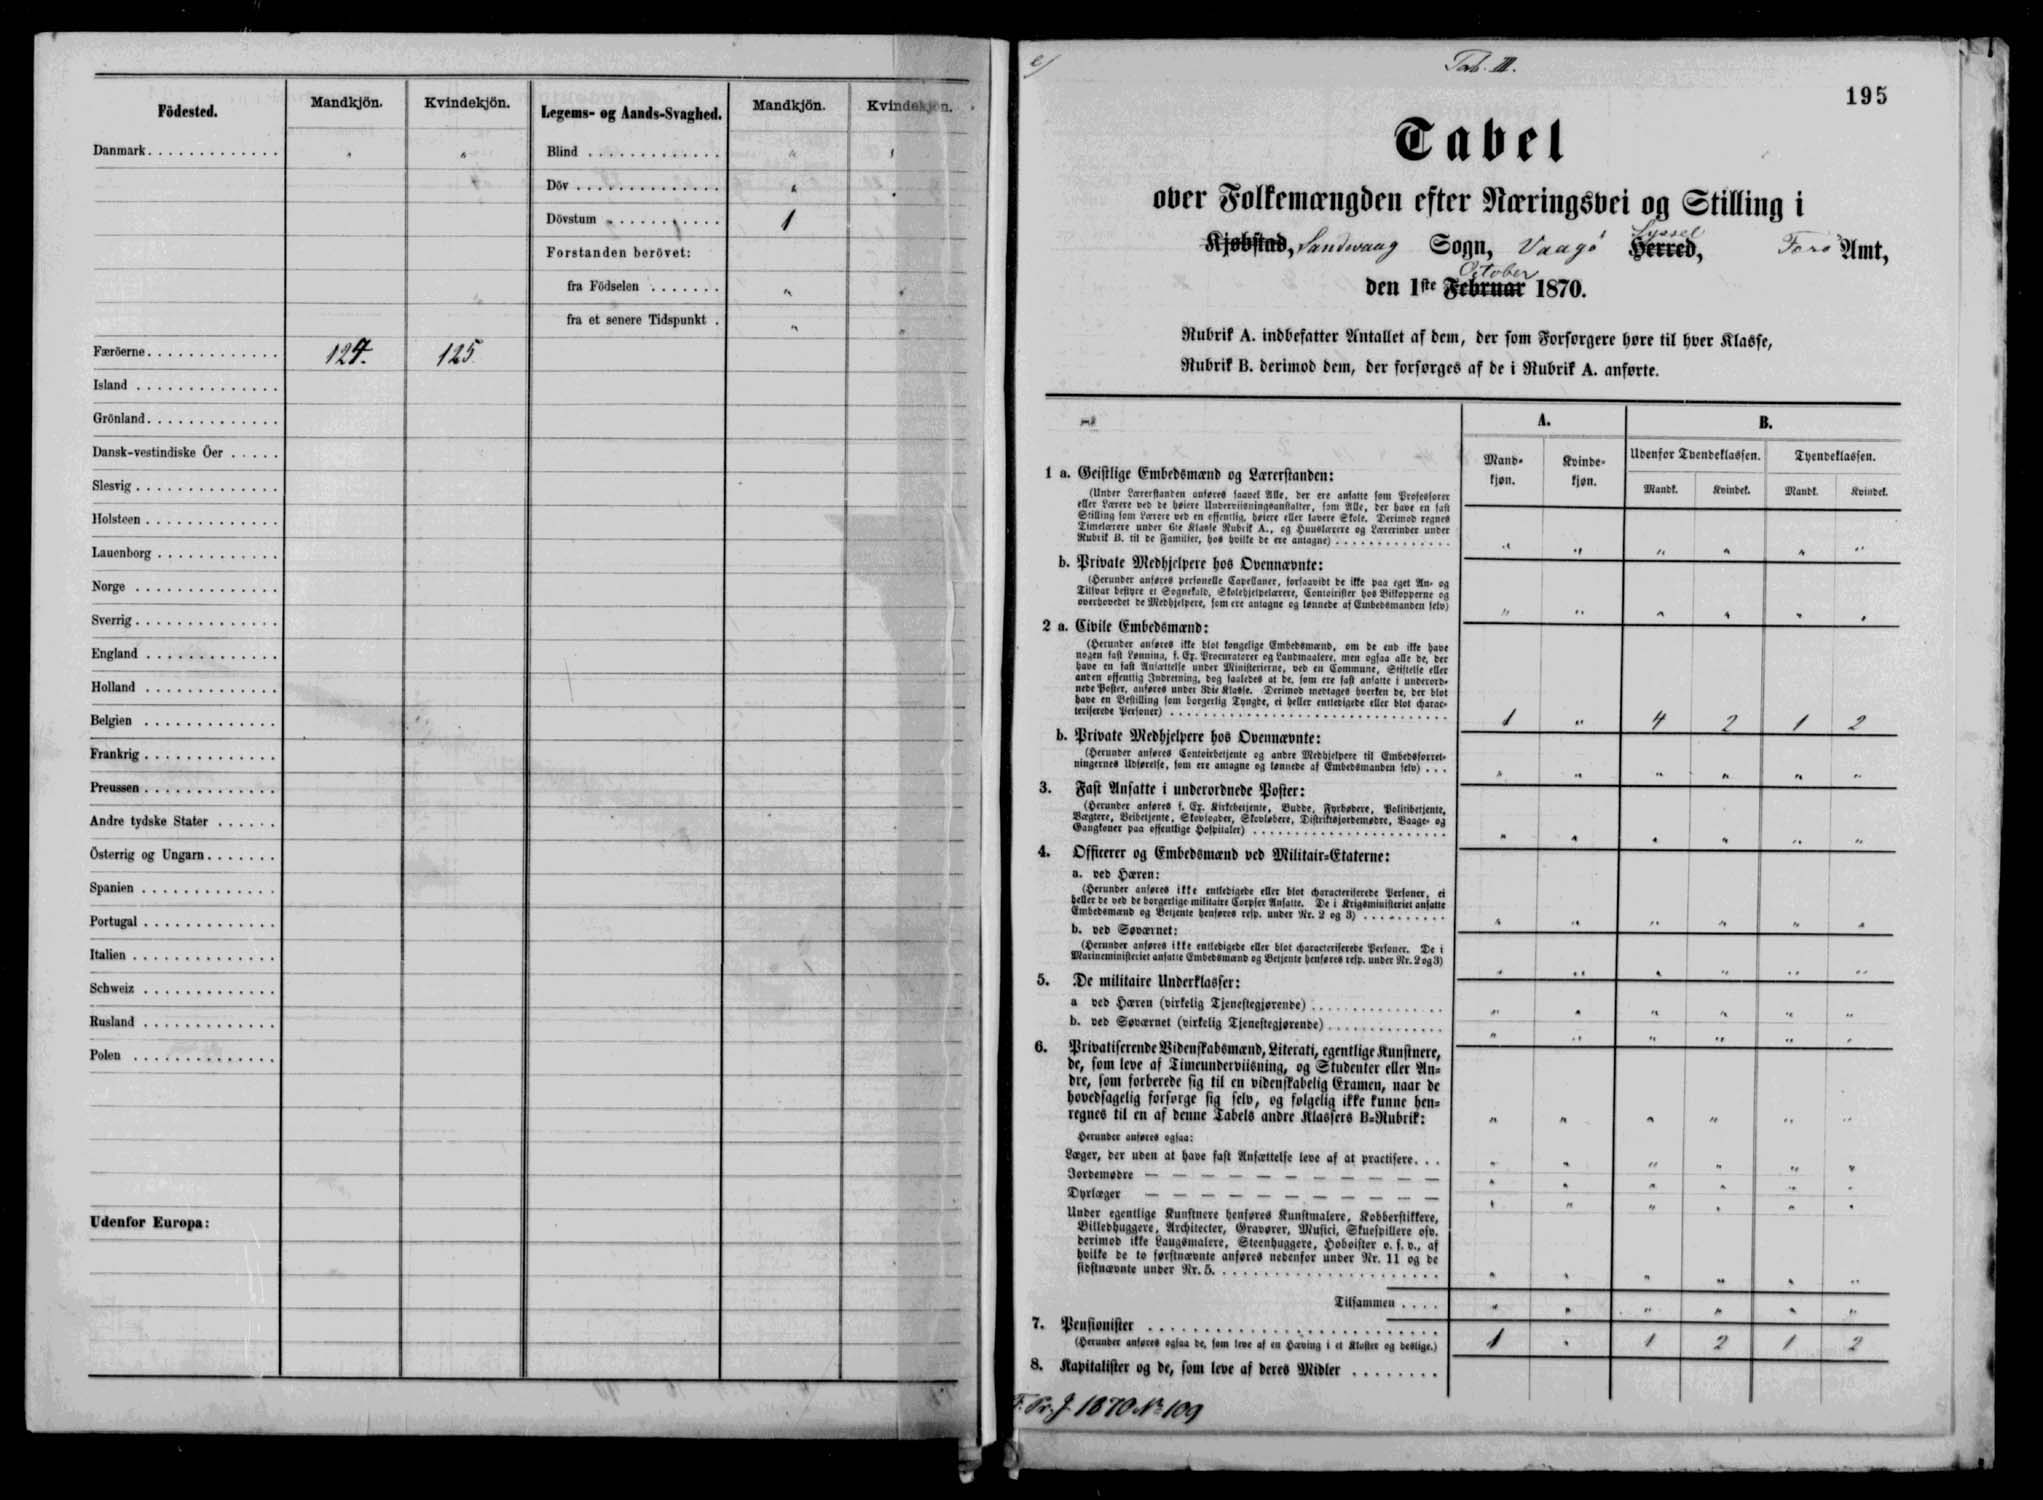 Födested. Mandkjön. Kvindekjön. Legems- og Aands-Svaghed. Mandkjön. Kvindekjön.
Danmark . . . . . . . . . . . . . " " Blind . . . . . . . . . . . . " "
Döv . . . . . . . . . . . . . . " "
Dövstum . . . . . . . . . . . 1
Forstanden berövet:
fra Födselen . . . . . . . " "
fra et senere Tidspunkt . " "
Færöerne . . . . . . . . . . . . . 124. 125
Island . . . . . . . . . . . . . .
Grönland . . . . . . . . . . . . .
Dansk-vestindiske Öer . . . . .
Slesvig . . . . . . . . . . . . . .
Holsteen . . . . . . . . . . . . .
Lauenborg . . . . . . . . . . . .
Norge . . . . . . . . . . . . . .
Sverrig . . . . . . . . . . . . . .
England . . . . . . . . . . . . .
Holland . . . . . . . . . . . . .
Belgien . . . . . . . . . . . . .
Frankrig . . . . . . . . . . . . .
Preussen . . . . . . . . . . . . .
Andre tydske Stater . . . . . .
Österrig og Ungarn . . . . . . .
Spanien . . . . . . . . . . . . .
Portugal . . . . . . . . . . . . .
Italien . . . . . . . . . . . . . .
Schweiz . . . . . . . . . . . . .
Rusland . . . . . . . . . . . . .
Polen . . . . . . . . . . . . . .
Udenfor Europa:
e/ Tab. III.
195
Tabel
over Folkemængden efter Næringsvei og Stilling i
Syssel
Kjøbstad, Sandvaag Sogn, Vaagö Herred, Ferö Amt,
October
den 1ste Februar 1870.
Rubrik A. indbefatter Antallet af dem, der som Forsørgere høre til hver Klasse,
Rubrik B. derimod dem, der forsørges af de i Rubrik A. anførte.
A. B.
Mandkjøn. Kvindekjøn. Udenfor Tyendeklassen. Tyendeklassen.
Mandk. Kvindek. Mandk. Kvindek.
1 a. Geistlige Embedsmænd og Lærerstanden:
(Under Lærerstanden anføres saavel Alle, der ere ansatte som Professorer
eller Lærere ved de høiere Underviisningsanstalter, som Alle, der have en fast
Stilling som Lærere ved en offentlig, høiere eller lavere Skole. Derimod regnes
Timelærere under 6te Klasse Rubrik A., og Huuslærere og Lærerinder under
Rubrik B. til de Familier, hos hvilke de ere antagne) . . . . . . . . . . . . . . " " " " " "
b. Private Medhjelpere hos Ovennævnte:
(Herunder anføres personelle Capellaner, forsaavidt de ikke paa eget An- og
Tilsvar bestyre et Sognekald, Skolehjelpelærere, Contoirister hos Biskopperne og
overhovedet de Medhjelpere, som ere antagne og lønnede af Embedsmanden selv) " " " " " "
2 a. Civile Embedsmænd:
(Herunder anføres ikke blot kongelige Embedsmænd, om de end ikke have
nogen fast Lønning, f. Ex. Procuratorer og Landmaalere, men ogsaa alle de, der
have en fast Ansættelse under Ministerierne, ved en Commune, Stiftelse eller
anden offentlig Indretning, dog saaledes at de, som ere fast ansatte i underord-
nede Poster, anføres under 3die Klasse. Derimod medtages hverken de, der blot
have en Bestilling som borgerlig Tyngde, ei heller entledigede eller blot charac-
teriserede Personer) . . . . . . . . . . . . . . . . . . . . . . . . . . . . . . . . 1 " 4 2 1 2
b. Private Medhjelpere hos Ovennævnte:
(Herunder anføres Contoirbetjente og andre Medhjelpere til Embedsforret-
ningernes Udførelse, som ere antagne og lønnede af Embedsmanden selv) . . . " " " " " "
3. Fast Ansatte i underordnede Poster:
(Herunder anføres f. Ex. Kirkebetjente, Budde, Fyrbødere, Politibetjente,
Vægtere, Veibetjente, Skovfogder, Skovløbere, Distriktsjordemødre, Vaage- og
Gangkoner paa offentlige Hospitaler) . . . . . . . . . . . . . . . . . . . . . . . " " " " " "
4. Officerer og Embedsmænd ved Militair-Etaterne:
a. ved Hæren:
(Herunder anføres ikke entledigede eller blot characteriserede Personer, ei
heller de ved de borgerlige militaire Corpser Ansatte. De i Krigsministeriet ansatte
Embedsmænd og Betjente henføres resp. under Nr. 2 og 3) . . . . . . . . . . " " " " " "
b. ved Søværnet:
(Herunder anføres ikke entledigede eller blot characteriserede Personer. De i
Marineministeriet ansatte Embedsmænd og Betjente henføres resp. under Nr. 2 og 3) " " " " " "
5. De militaire Underklasser:
a ved Hæren (virkelig Tjenestegjørende) . . . . . . . . . . . . . . . " " " " " "
b. ved Søværnet (virkelig Tjenestegjørende) . . . . . . . . . . . . . . " " " " " "
6. Privatiserende Videnskabsmænd, Literati, egentlige Kunstnere,
de, som leve af Timeunderviisning, og Studenter eller An-
dre, som forberede sig til en videnskabelig Examen, naar de
hovedsagelig forsørge sig selv, og følgelig ikke kunne hen-
regnes til en af denne Tabels andre Klassers B-Rubrik: " " " " " "
Herunder anføres ogsaa:
Læger, der uden at have fast Ansættelse leve af at practisere. . . " " " " " "
Jordemødre — — — — — — — — — — — " " " " " "
Dyrlæger — — — — — — — — — — — " " " " " "
Under egentlige Kunstnere henføres Kunstmalere, Kobberstikkere,
Billedhuggere, Architecter, Gravører, Musici, Skuespillere osv.
derimod ikke Laugsmalere, Steenhuggere, Hoboister o. s. v., af
hvilke de to førstnævnte anføres nedenfor under Nr. 11 og de
sidstnævnte under Nr. 5. . . . . . . . . . . . . . . . . . . . . . . " " " " " "
Tilsammen . . . . " " " " " "
7. Pensionister . . . . . . . . . . . . . . . . . . . . . . . . . . 1 " 1 2 1 2
(Herunder anføres ogsaa de, som leve af en Hæving i et Kloster og deslige.)
8. Kapitalister og de, som leve af deres Midler . . . . . . . .
F. Pr. J. 1870 No 109